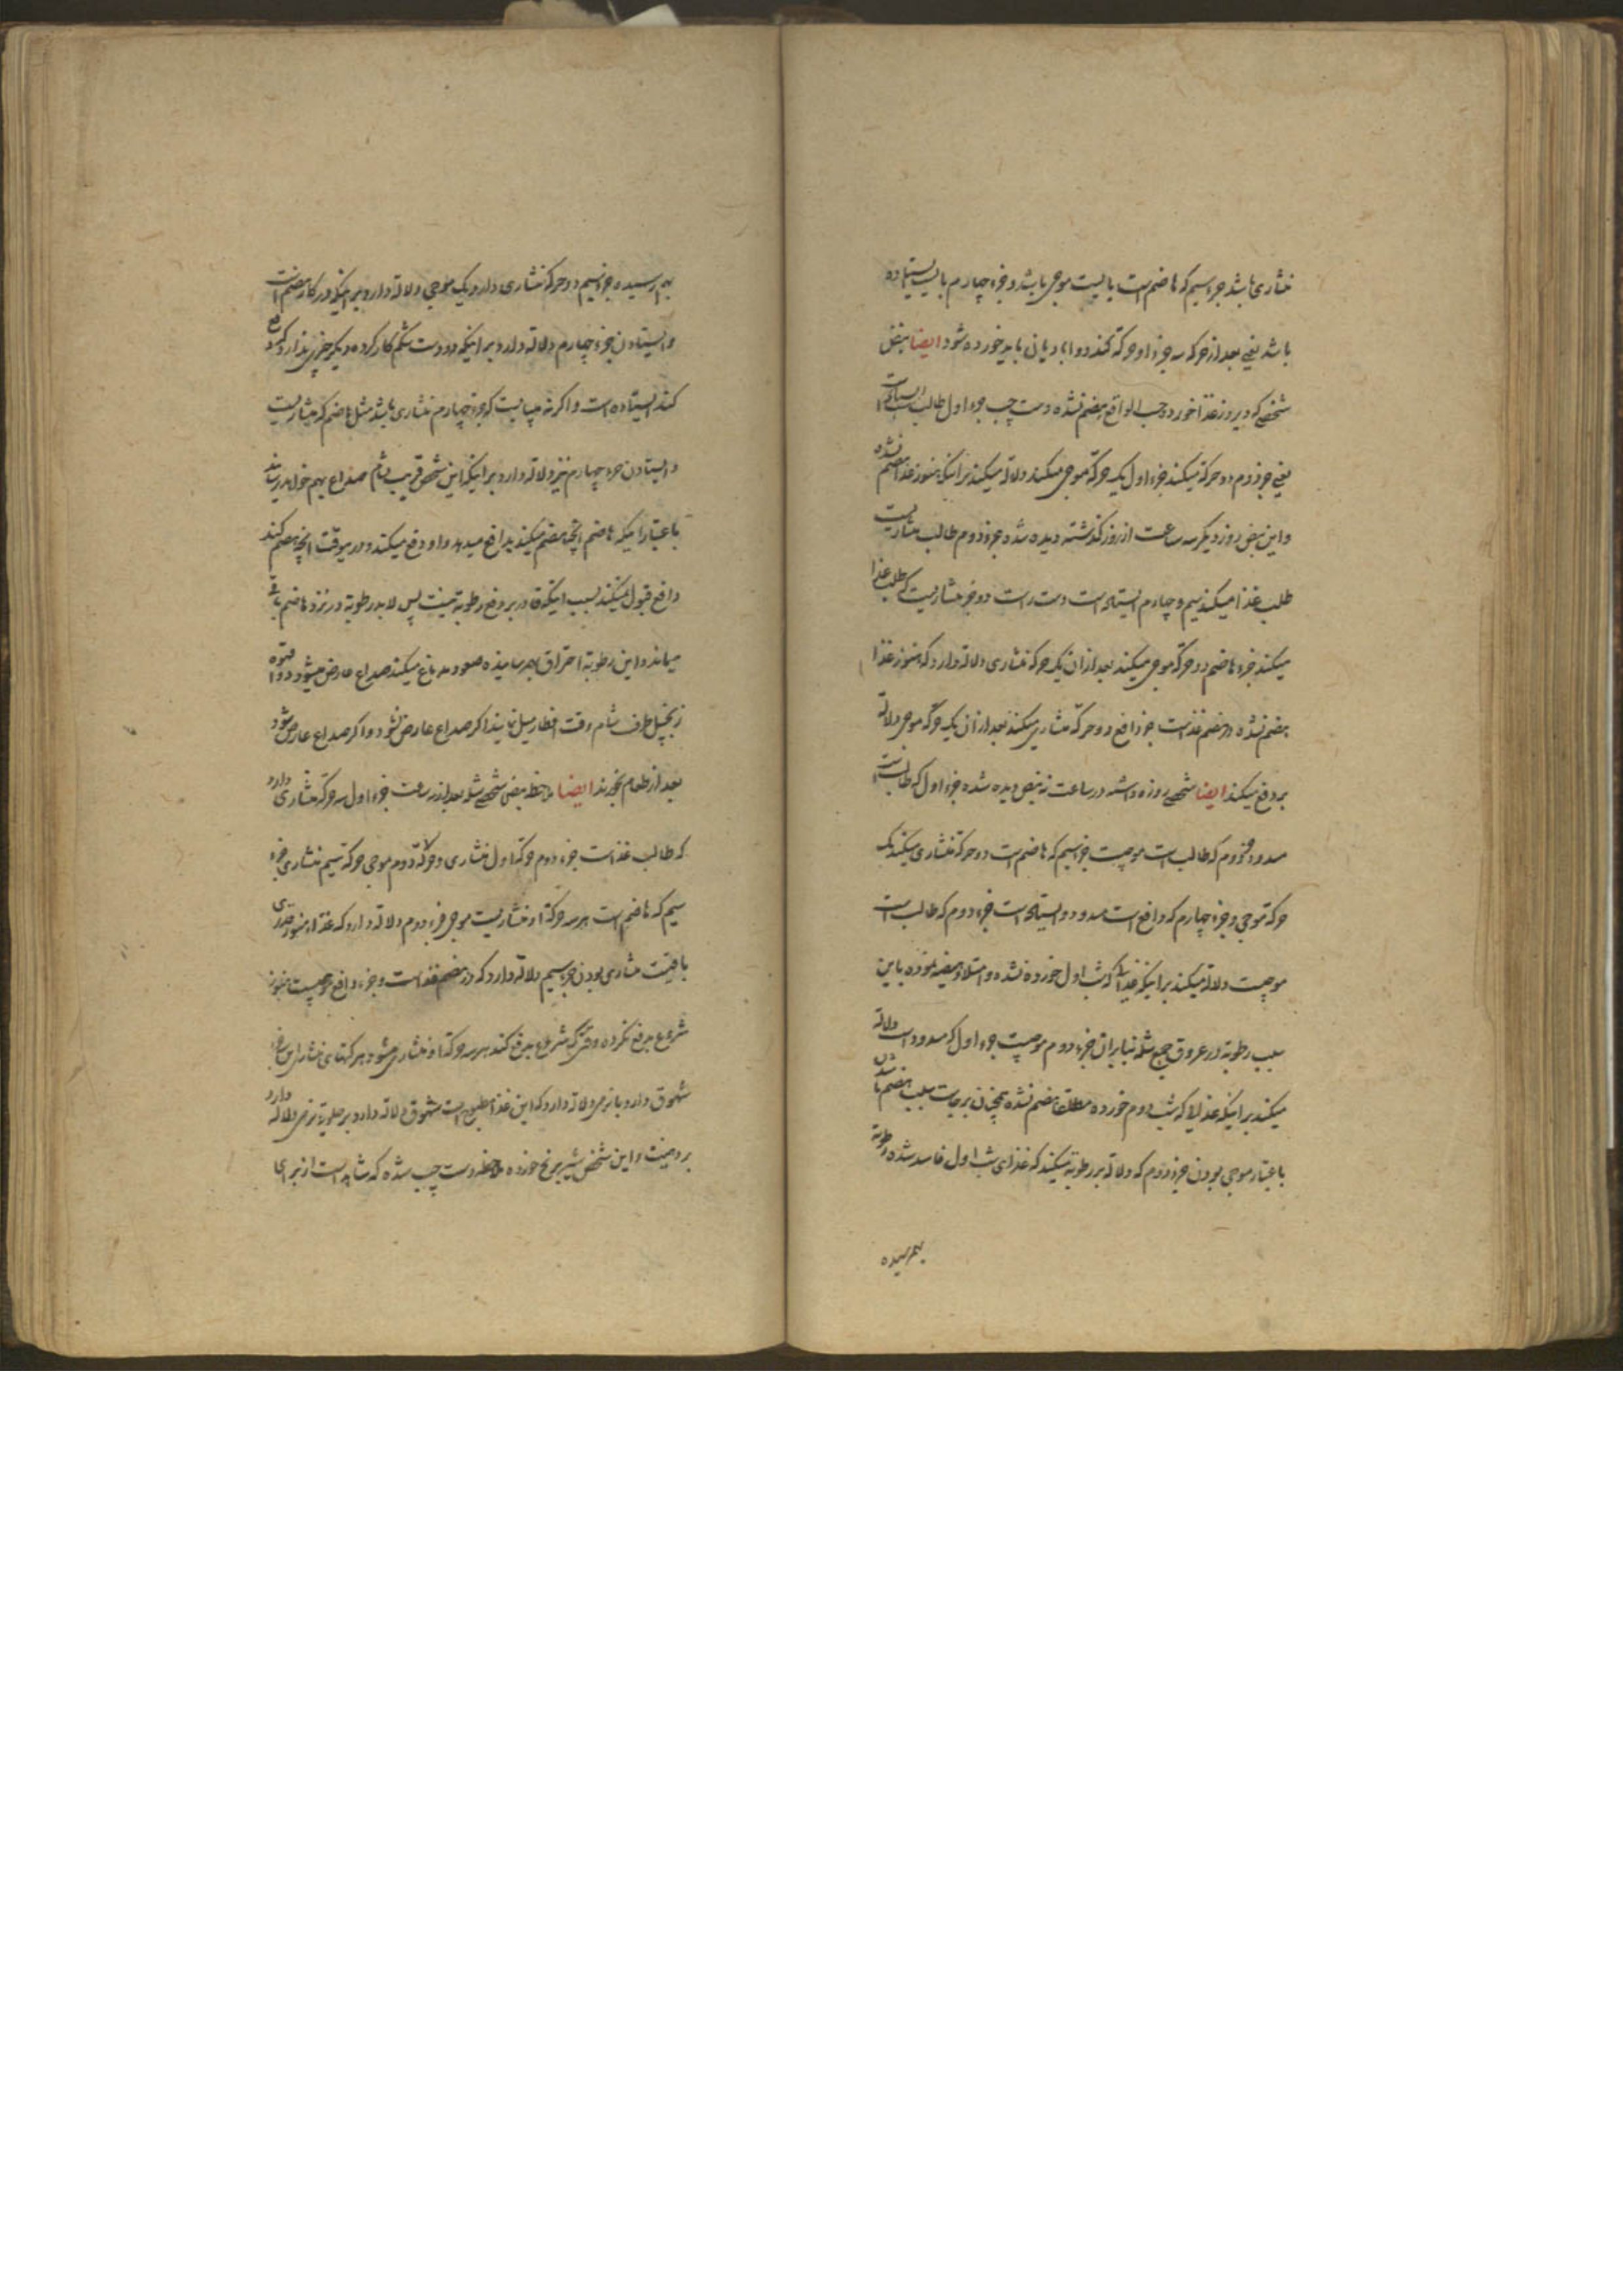 منشاری باشد جزء سیم که هاضم است بایست موجی باشد و جزء چهارم بایست ایستاده
باشد یعنی بعد از حرکه سه جزء او حرکه نکند دو ابادیان باید خورده شود ایضا نبض
شخصی که دیروز غذا خورده حسب الواقع هضم نشده دست چپ جزء اول طالب است ایستاده است
یعنی جزء دوم دو حرکة میکند جزء اول یک حرکة موجی میکند دلالة میکند بر اینکه هنوز غذا هضم نشده
و این نبض روز دیگر سه ساعت از روز گذشته دیده شد و جزء دوم طالب منشاریست
طلب غذا میکند سیم و چهارم ایستاده است دست راست دو جزء منشاریست که طلب غذا
میکند جزء هاضم دو حرکة موجی میکند بعد از آن یک حرکه منشاری دلالة دارد که هنوز غذا
هضم نشده در هضم غذاست جزء دافع دو حرکة منشاری میکند بعد از آن یک حرکه موجی دلالة
بر دفع میکند ایضا شخصی روزه داشته در ساعت نه نبض دیده شده جزء اول که طالب است
مسدود جزء دوم که طالب است موجیست جزء سیم که هاضم است دو حرکة منشاری میکند یک
حرکة موجی و جزء چهارم که دافع است مسدود و ایستاده است جزء دوم که طالب است
موجیست دلالة میکند بر اینکه غذائی که شب اول خورده نشده و امتلاء و هیضه نموده باین
سبب رطوبة در عروق جمع شده بنابران جزء دوم موجیست جزء اول که مسدود است دلالة
میکند بر اینکه غذائی که شب دوم خورده مطلقا هضم نشده همچنان بر جاست بسبب هضم ناشدن
باعتبار موجی بودن جزء دوم که دلالة بر رطوبة میکند که غذای شب اول فاسد شده رطوبة
بهم رسیده
بهم رسیده جزء سیم دو حرکه منشاری دارد یک موجی دلالة دارد بر اینکه در کار هضم است
و ایستادن جزء چهارم دلالة دارد بر اینکه دو دست شکم کار کرده دیگر چیزی ندارد که دفع
کند ایستاده است و اگر نه میبایست که جزء چهارم منشاری باشد مثل هاضم که منشاریست
و ایستادن جزء چهارم نیز دلالة دارد بر اینکه این شخص قریب بشام صداع بهم خواهد رسانید
باعتبار اینکه هاضم آنچه هضم میکند بدافع میدهد و او دفع میکند و در هر وقت آنچه هضم کند
دافع قبول نمیکند بسبب اینکه قادر بر دفع رطوبة نیست پس لابد رطوبة در نزد هاضم باقی
میماند و این رطوبة احتراق بهم رسانیده صعود بدماغ میکند صداع عارض میشود دوا قهوه
زنجبیل طرف شام وقت افطار میل نمایند اگر صداع عارض نشود و اگر صداع عارض شود
بعد از طعام بخورند ایضا ملاحظه نبض شخصی شده بعد از نه ساعت جزء اول سه حرکه منشاری دارد
که طالب غذاست جزء دوم حرکة اول منشاری و حرکة دوم موجی حرکة سیم منشاری جزء
سیم که هاضم است هر سه حرکة او منشاریست موجی جزء دوم دلالة دارد که غذا هنوز قدری
باقیست منشاری بودن جزء سیم دلالة دارد که در هضم غذاست و جزء دافع موجیست هنوز
شروع بدفع نکرده وقتی که شروع بدفع کند هر سه حرکة او منشاری میشود هر گاه منشاری این جزء
شهوق دارد با نرمی دلالة دارد که این غذا مطبوع است شهوق دلالة دارد بر حلویة نرمی دلالة دارد
بر دهنیت و این شخص شیر برنج خورده ملاحظه دست چپ شده که شاهد است از برای